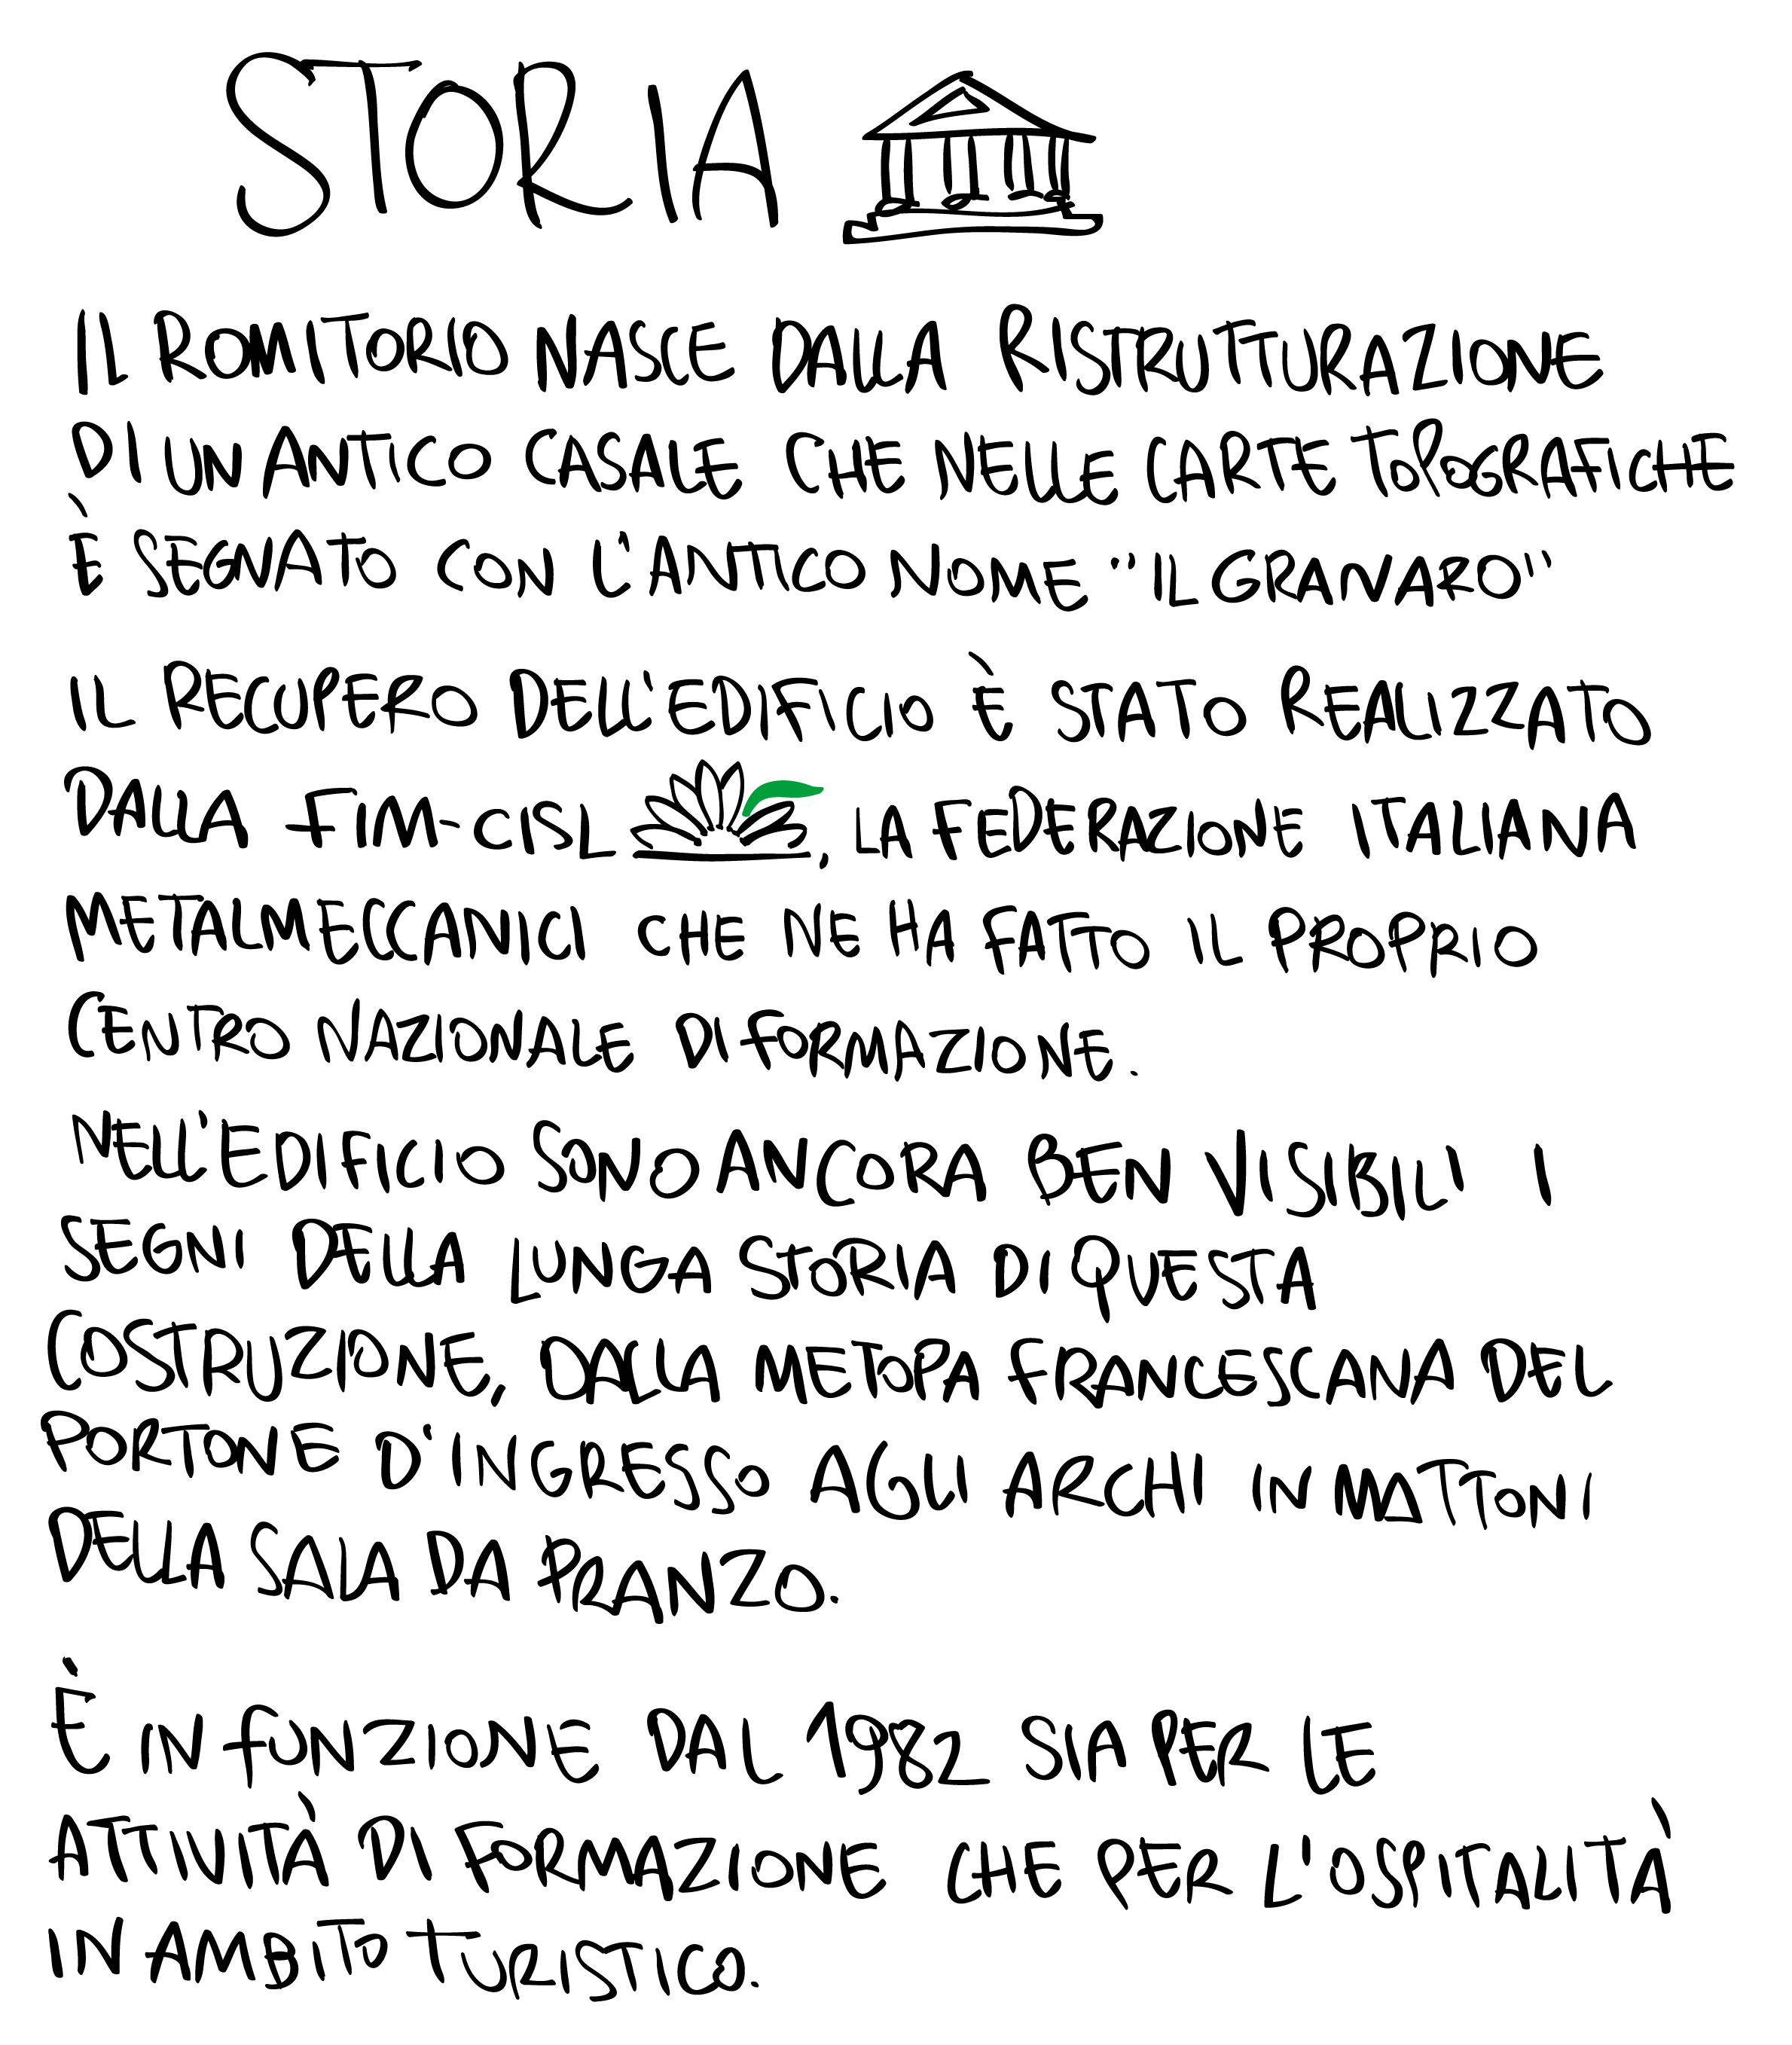 STORIA
IL ROMITORIO NASCE DALLA RISTRUTTURAZIONE
DI UN ANTICO CASALE CHE NELLE CARTE TOPOGRAFICHE
È SEGNATO CON L'ANTICO NOME "IL GRANARO"
IL RECUPERO DELL'EDIFICIO È STATO REALIZZATO
DALLA FIM-CISL, LA FEDERAZIONE ITALIANA
METALMECCANICI CHE NE HA FATTO IL PROPRIO
CENTRO NAZIONALE DI FORMAZIONE.
NELL'EDIFICIO SONO ANCORA BEN VISIBILI I
SEGNI DELLA LUNGA STORIA DI QUESTA
COSTRUZIONE, DALLA METOPA FRANCESCANA DEL
PORTONE D'INGRESSO AGLI ARCHI IN MATTONI
DELLA SALA DA PRANZO.
È IN FUNZIONE DAL 1982 SIA PER LE
ATTIVITÀ DI FORMAZIONE CHE PER L'OSPITALITÀ
IN AMBITO TURISTICO.